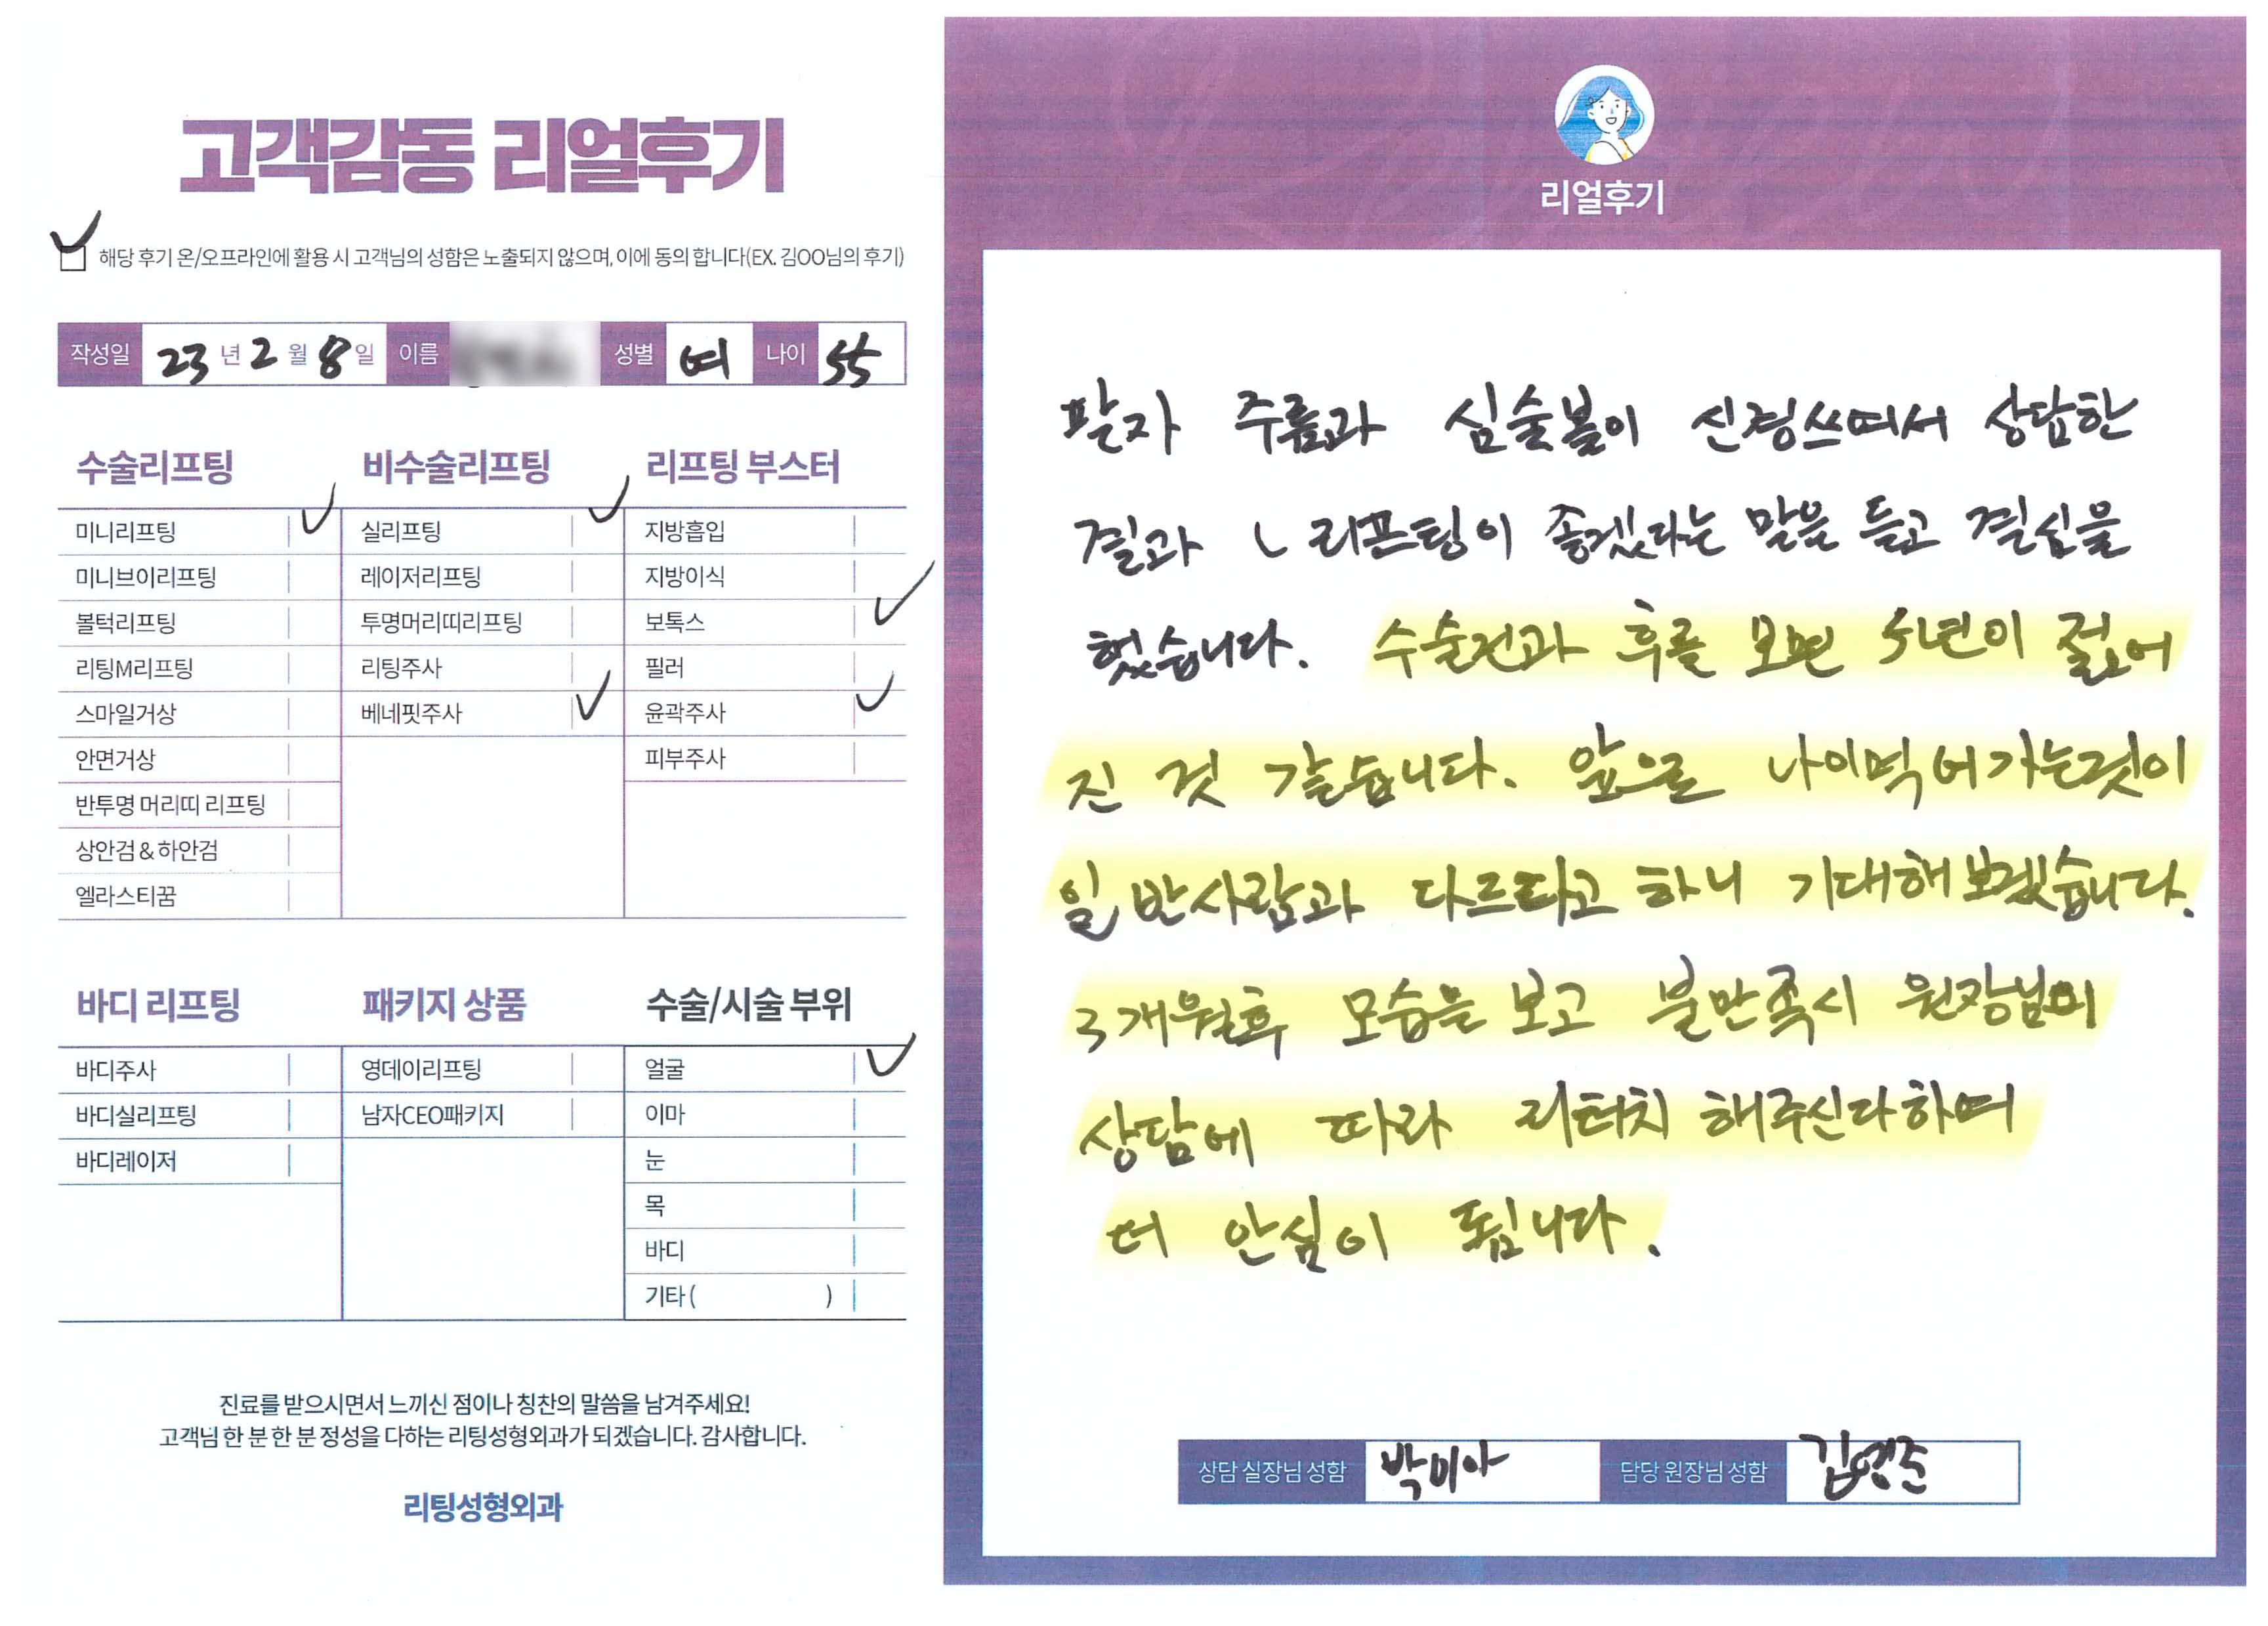 고객감동 리얼후기
해당 후기 온/오프라인에 활용 시 고객님의 성함은 노출되지 않으며, 이에 동의 합니다(EX. 김OO님의 후기)
작성일 23 년 2 월 8 일 이름 성별 여 나이 55
수술리프팅
미니리프팅
미니브이리프팅
볼턱리프팅
리팅M리프팅
스마일거상
안면거상
반투명 머리띠 리프팅
상안검 & 하안검
엘라스티꿈
비수술리프팅
실리프팅
레이저리프팅
투명머리띠리프팅
리팅주사
베네핏주사
리프팅 부스터
지방흡입
지방이식
보톡스
필러
윤곽주사
피부주사
바디 리프팅
바디주사
바디실리프팅
바디레이저
패키지 상품
영데이리프팅
남자CEO패키지
수술/시술 부위
얼굴
이마
눈
목
바디
기타 ( )
진료를 받으시면서 느끼신 점이나 칭찬의 말씀을 남겨주세요!
고객님 한 분 한 분 정성을 다하는 리팅성형외과가 되겠습니다. 감사합니다.
리팅성형외과
리얼후기
팔자 주름과 심술볼이 신경쓰여서 상담한
결과 L 리프팅이 좋겠다는 말을 듣고 결심을
했습니다. 수술전과 후를 보면 5년이 젊어
진 것 같습니다. 앞으로 나이먹어가는것이
일반사람과 다르다고 하니 기대해보겠습니다.
3개월후 모습을 보고 불만족시 원장님의
상담에 따라 리터치 해주신다하여
더 안심이 됩니다.
상담 실장님 성함 박미아 담당 원장님 성함 김연준